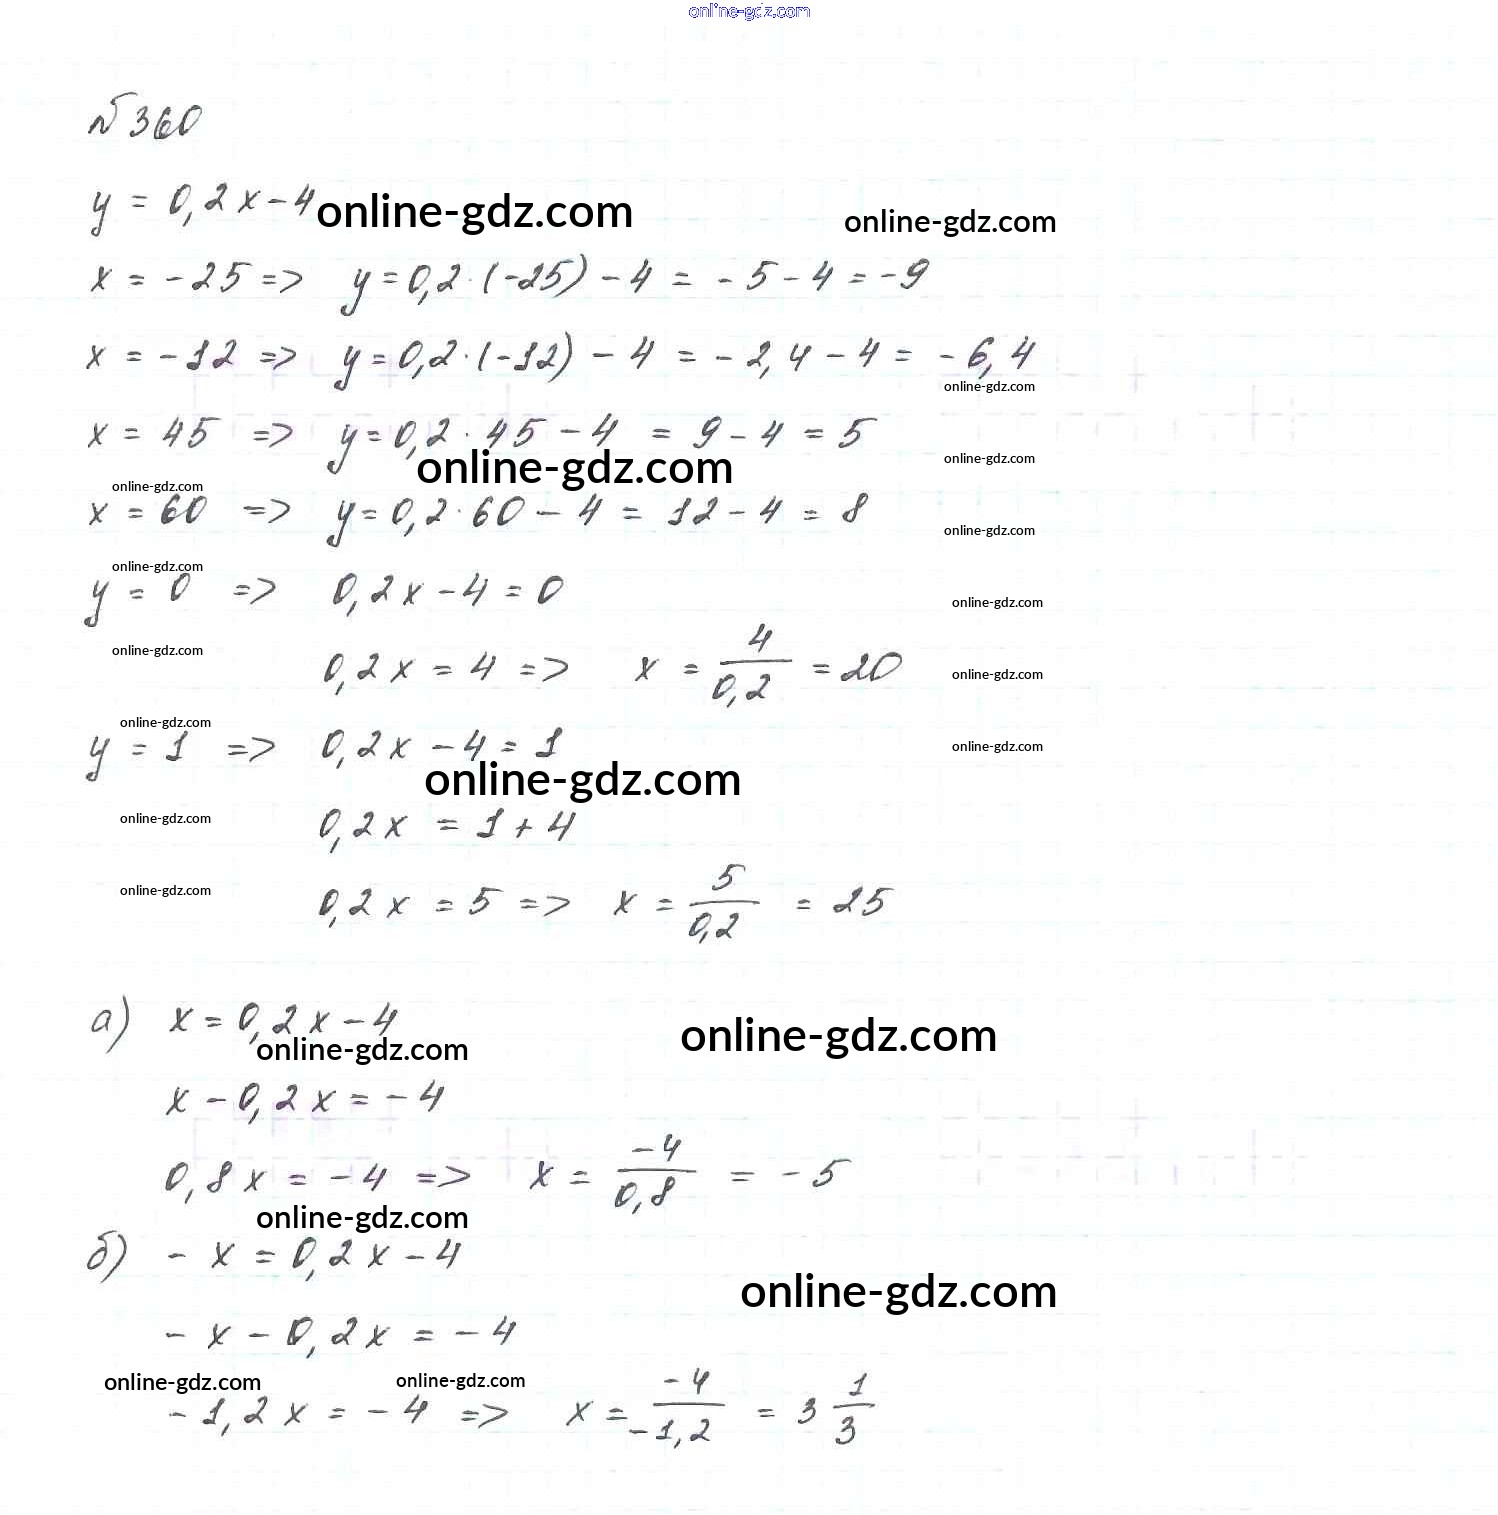 online-gdz.com
№360
y = 0,2x-4 online-gdz.com online-gdz.com
x = -25 => y=0,2·(-25)-4 = -5-4=-9
x = -12 => y=0,2·(-12)-4 = -2,4-4= -6,4
online-gdz.com
x = 45 => y=0,2·45-4 = 9-4=5
online-gdz.com online-gdz.com
online-gdz.com
x = 60 => y=0,2·60-4 = 12-4 = 8
online-gdz.com
online-gdz.com
y = 0 => 0,2x-4=0
online-gdz.com
online-gdz.com
0,2x = 4 => x = 4/0,2 = 20
online-gdz.com
online-gdz.com
y = 1 => 0,2x-4=1
online-gdz.com
online-gdz.com
online-gdz.com
0,2x = 1+4
online-gdz.com
0,2x = 5 => x = 5/0,2 = 25
а) x=0,2x-4
online-gdz.com online-gdz.com
x-0,2x=-4
0,8x = -4 => x = -4/0,8 = -5
online-gdz.com
б) -x=0,2x-4
online-gdz.com
-x-0,2x = -4
online-gdz.com online-gdz.com
-1,2x = -4 => x = -4/-1,2 = 3 1/3